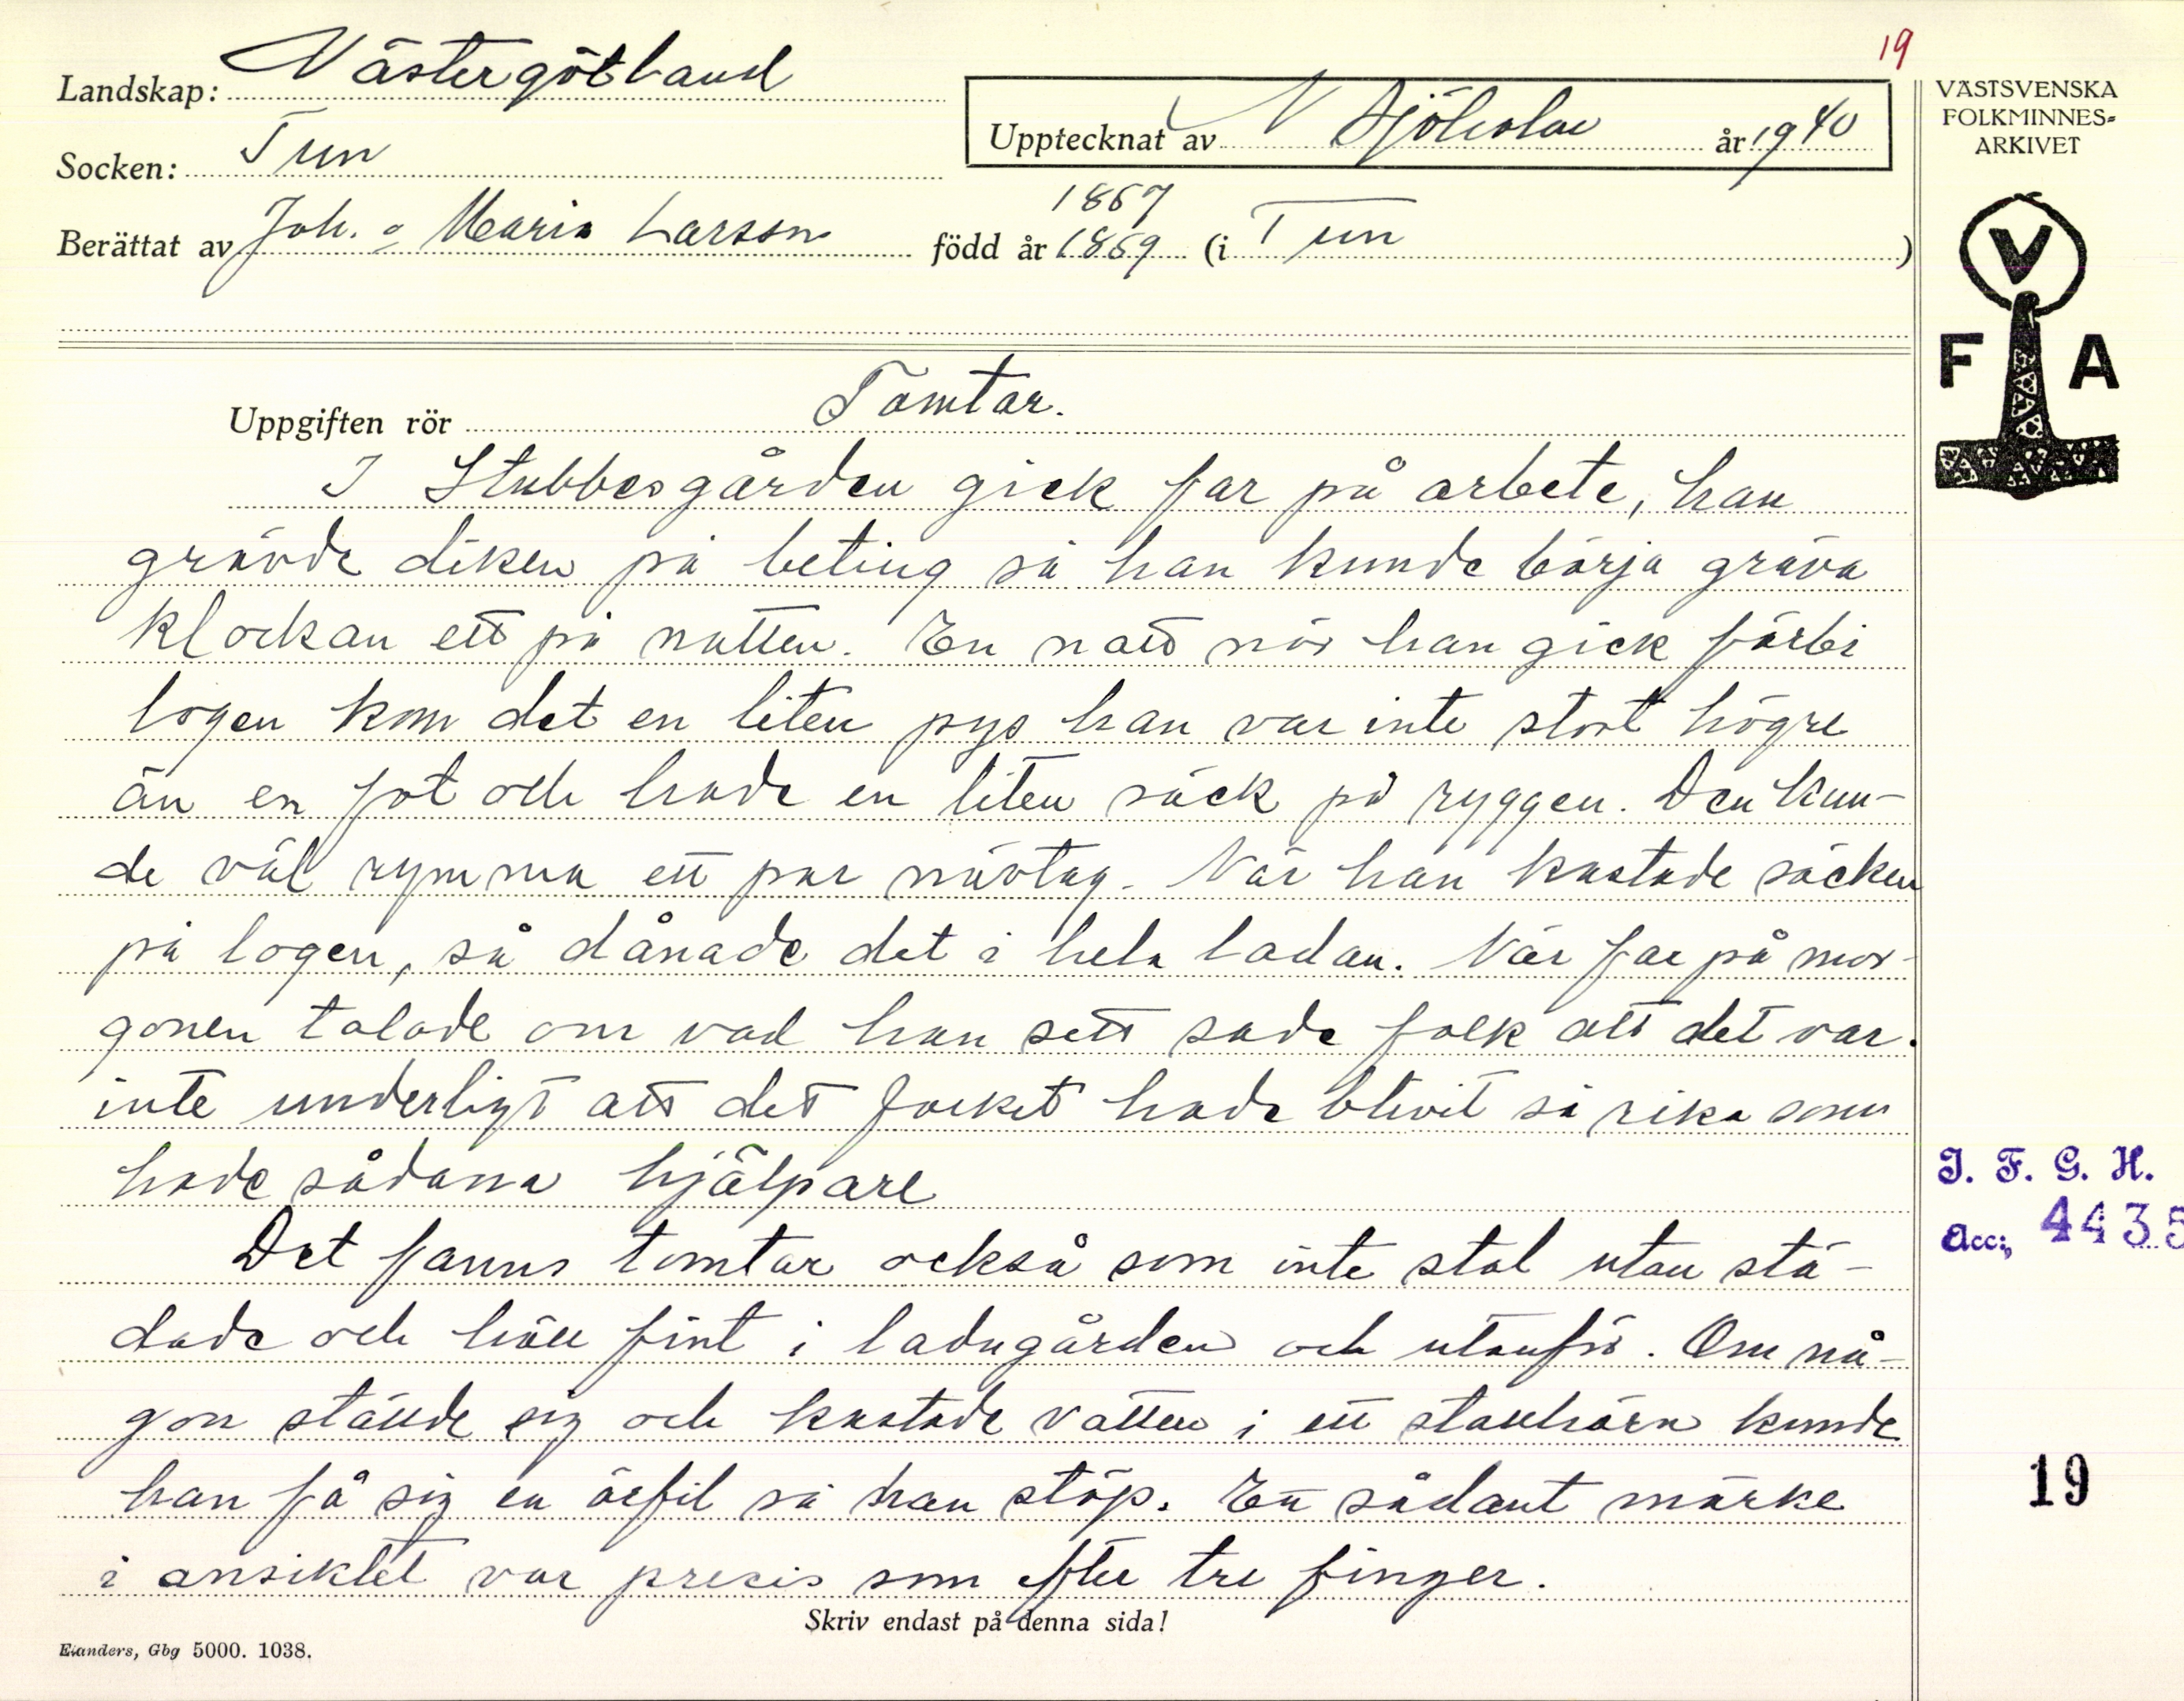 19
Landskap: Västergötland
Socken: Tun
Upptecknat av N Sjöholm år 1940
Berättat av Joh. o Maria Larsson född år 1867 1869 (i Tun)
VÄSTSVENSKA
FOLKMINNES-
ARKIVET
V
F A
Uppgiften rör Tomtar.
I Stubbesgården gick far på arbete, han
grävde diken på beting så han kunde börja gräva
klockan ett på natten. En natt när han gick förbi
logen kom det en liten pys han var inte stort högre
än en fot och hade en liten säck på ryggen. Den kun-
de väl rymma ett par nävtag. När han kastade säcken
på logen, så dånade det i hela ladan. När far på mor-
gonen talade om vad han sett sade folk att det var.
inte underligt att det folket hade blivit så rika som
hade sådana hjälpare
Det fanns tomtar också som inte stal utan stä-
dade och höll fint i ladugården och utanför. Om nå-
gon ställde sig och kastade vatten i ett stallhörn kunde
han få sig en örfil så han stöp. Ett sådant märke
i ansiktet var precis som efter tre finger.
I. F. G. H.
Acc:, 4435
19
Skriv endast på denna sida!
Elanders, Gbg 5000. 1038.